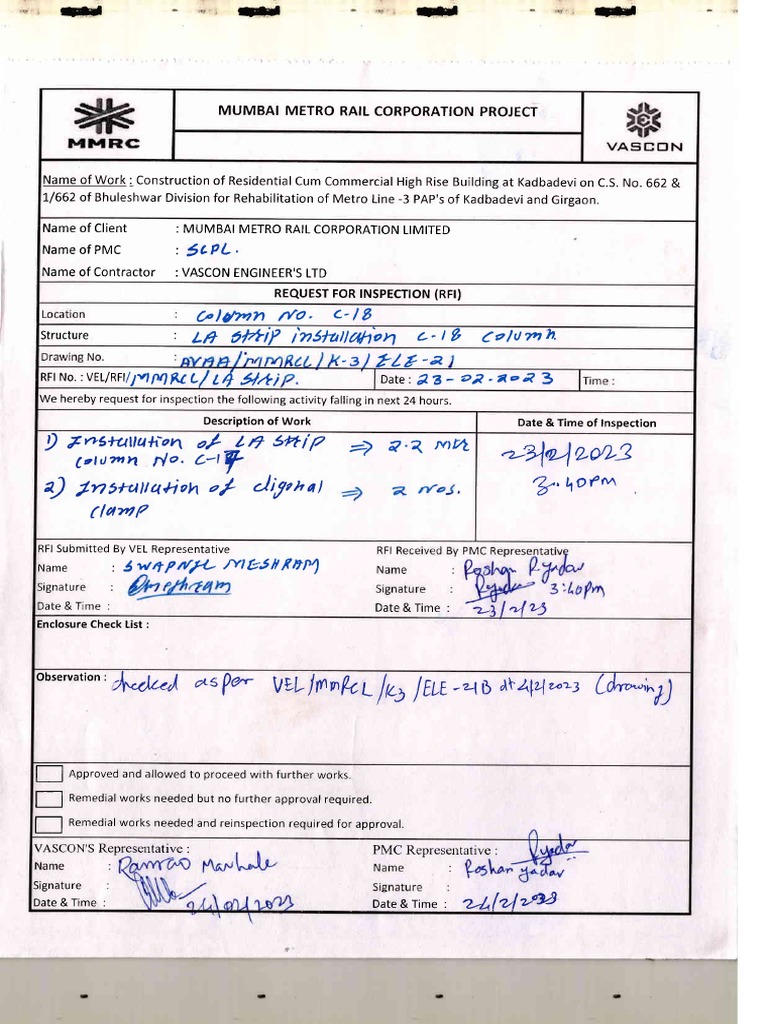 MUMBAI METRO RAIL CORPORATION PROJECT
MMRC
VASCON
Name of Work : Construction of Residential Cum Commercial High Rise Building at Kadbadevi on C.S. No. 662 &
1/662 of Bhuleshwar Division for Rehabilitation of Metro Line -3 PAP's of Kadbadevi and Girgaon.
Name of Client : MUMBAI METRO RAIL CORPORATION LIMITED
Name of PMC : SCPL.
Name of Contractor : VASCON ENGINEER'S LTD
REQUEST FOR INSPECTION (RFI)
Location : Column No. C-18
Structure : LA Strip installation C-18 Column.
Drawing No. : AVAA/MMRCL/K-3/ELE-21
RFI No. : VEL/RFI/MMRCL/LA Strip. Date : 23-02-2023 Time :
We hereby request for inspection the following activity falling in next 24 hours.
Description of Work Date & Time of Inspection
1) Installation of LA Strip ⇒ 2.2 Mtr 23/2/2023
Column No. C-17
3:40PM
2) Installation of digonal ⇒ 2 Nos.
clamp
RFI Submitted By VEL Representative RFI Received By PMC Representative
Name : SWAPNIL MESHRAM Name : Roshan R. Yadav
Signature : Signature : 3:40PM
Date & Time : Date & Time : 23/2/23
Enclosure Check List :
Observation : checked as per VEL/MMRCL/K3/ELE-21B dt 4/2/2023 (drawing)
Approved and allowed to proceed with further works.
Remedial works needed but no further approval required.
Remedial works needed and reinspection required for approval.
VASCON'S Representative : PMC Representative :
Name : Ramrao Name : Roshan yadav
Signature : Signature :
Date & Time : 24/02/2023 Date & Time : 24/2/2023